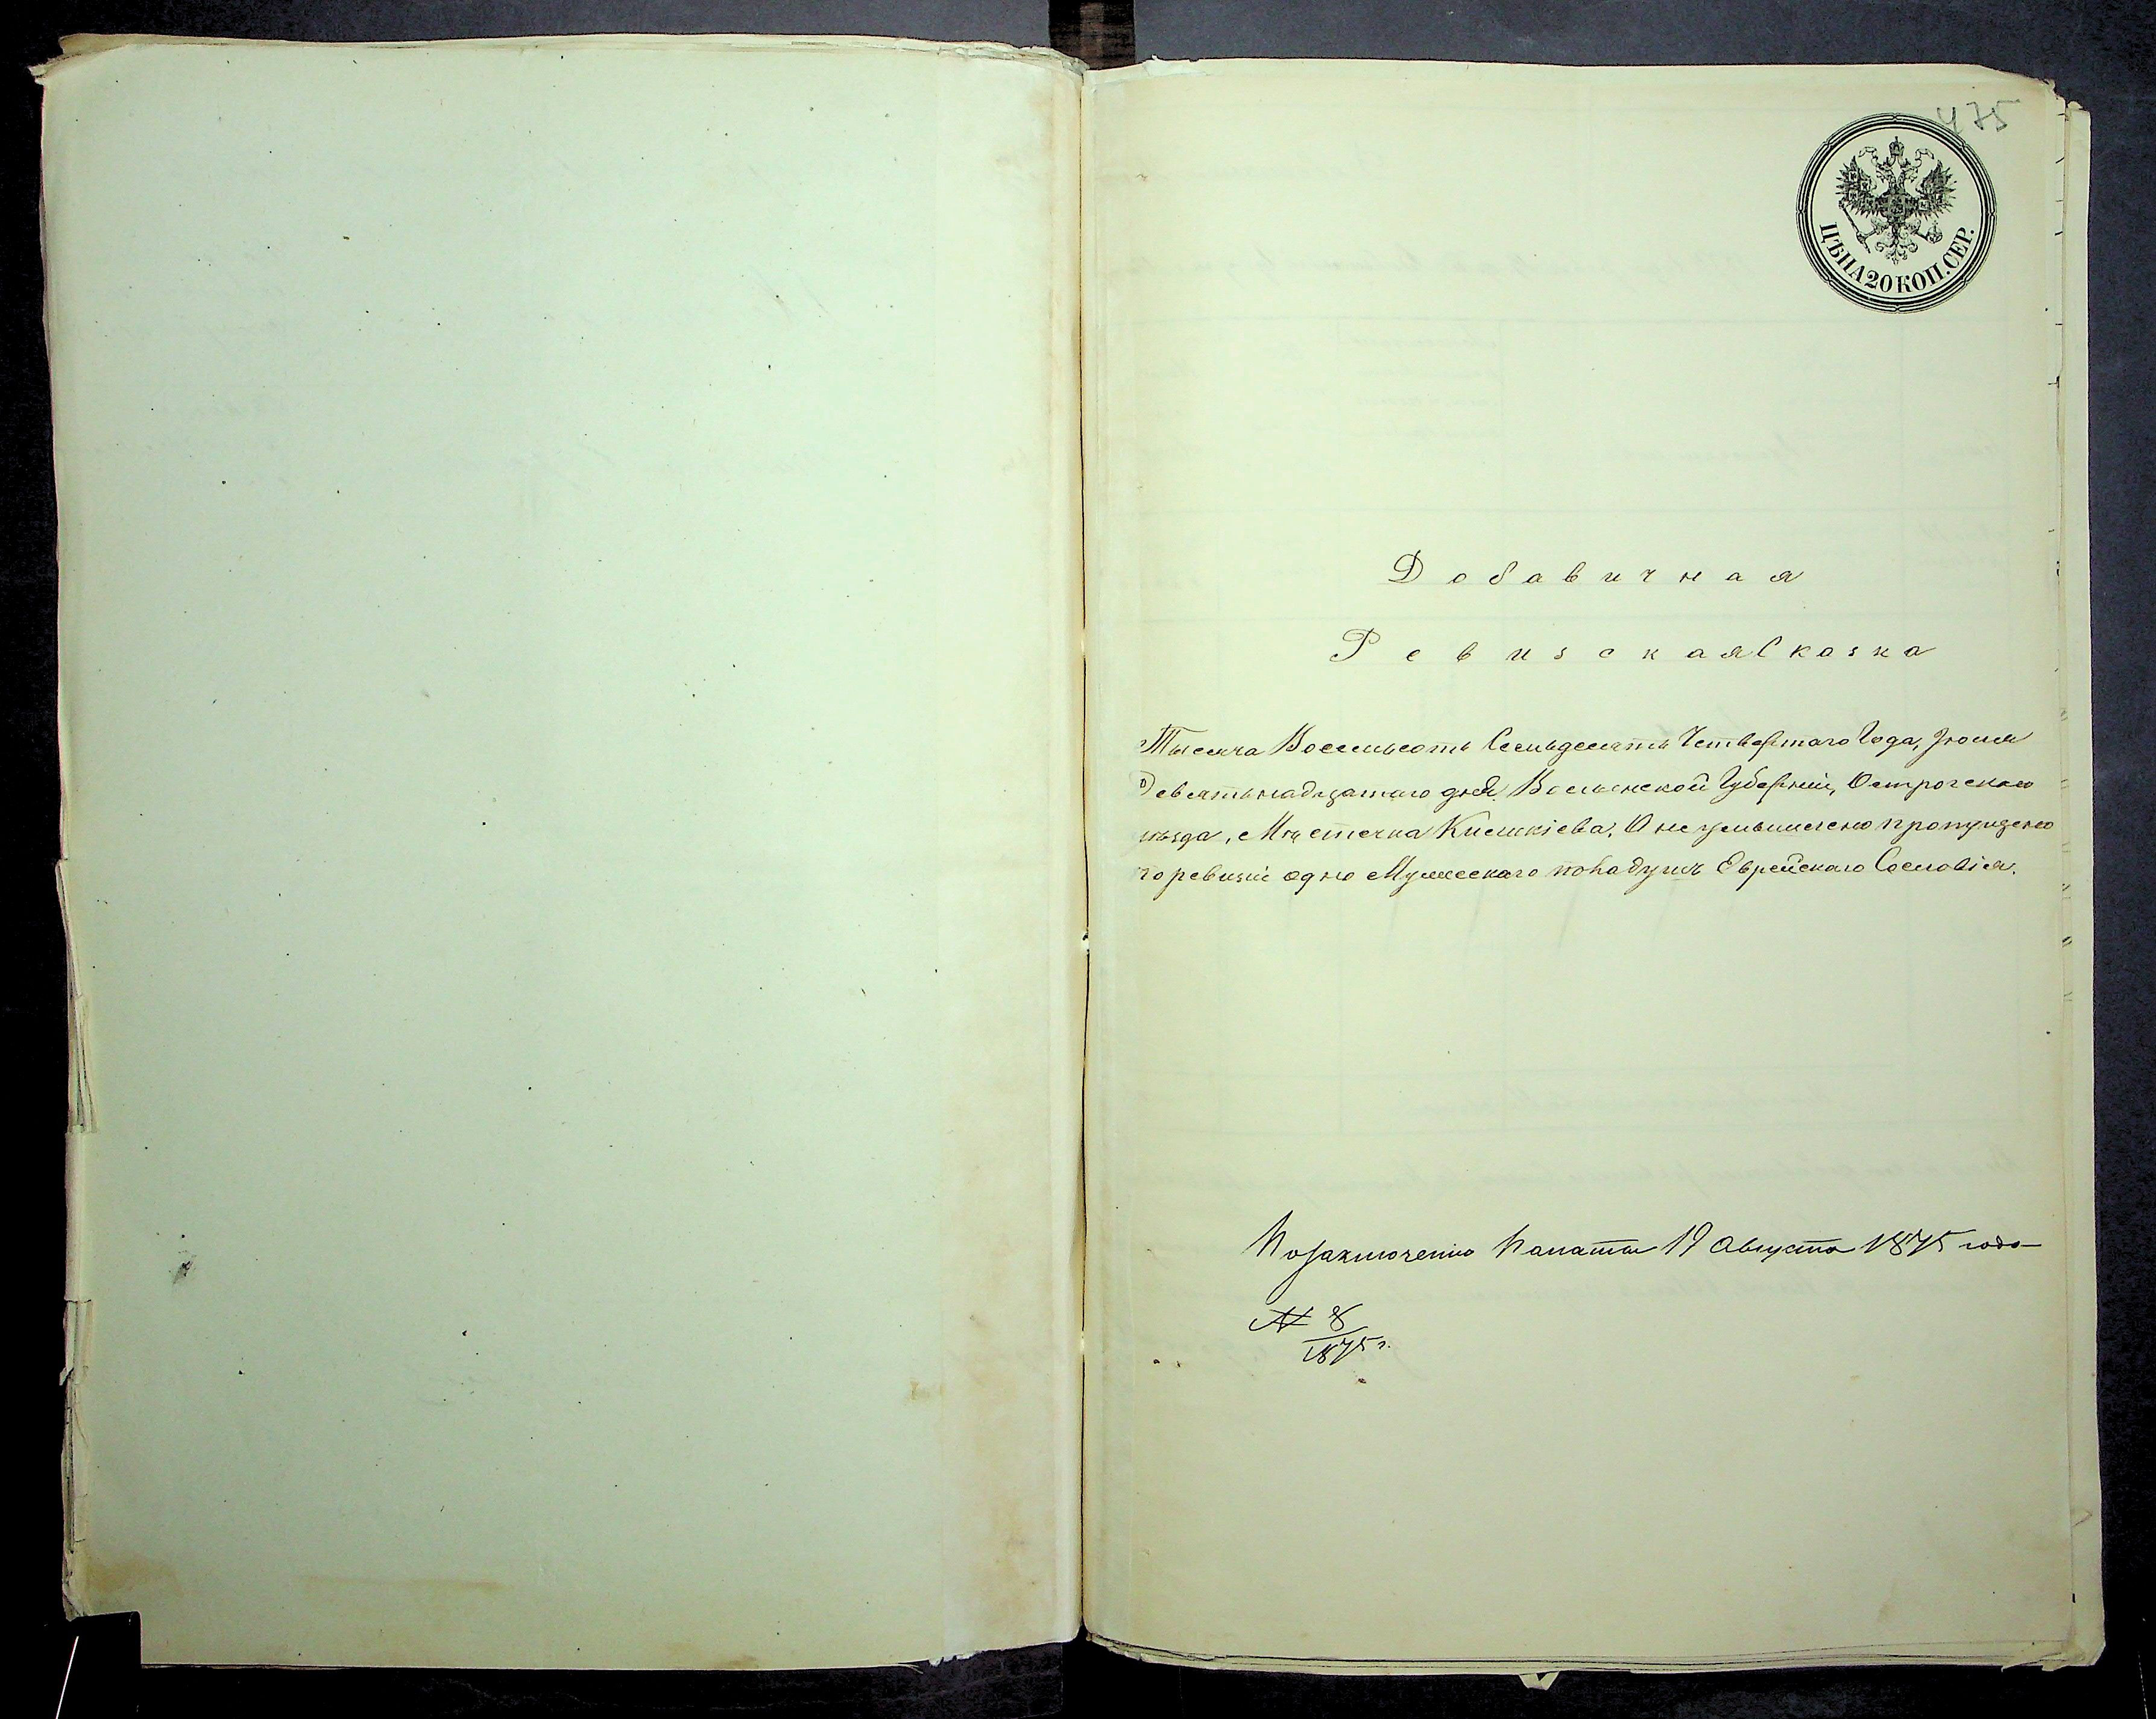 475
ЦѢНА 20 КОП. СЕР.
Добавичная
Ревизская Сказка
Тысяча Восемьсотъ Семьдесятъ Четвертаго Года, Іюля
Девятьнадцатаго дня. Волынской Губерніи, Острогскаго
уѣзда, Мѣстечка Киликіева, О не умышлено пропущено
по ревизіи одно Мужескаго пола душъ Еврейскаго Сословія.
По заключенію Палаты 19 Августа 1875 года
№ 8
1875 г.